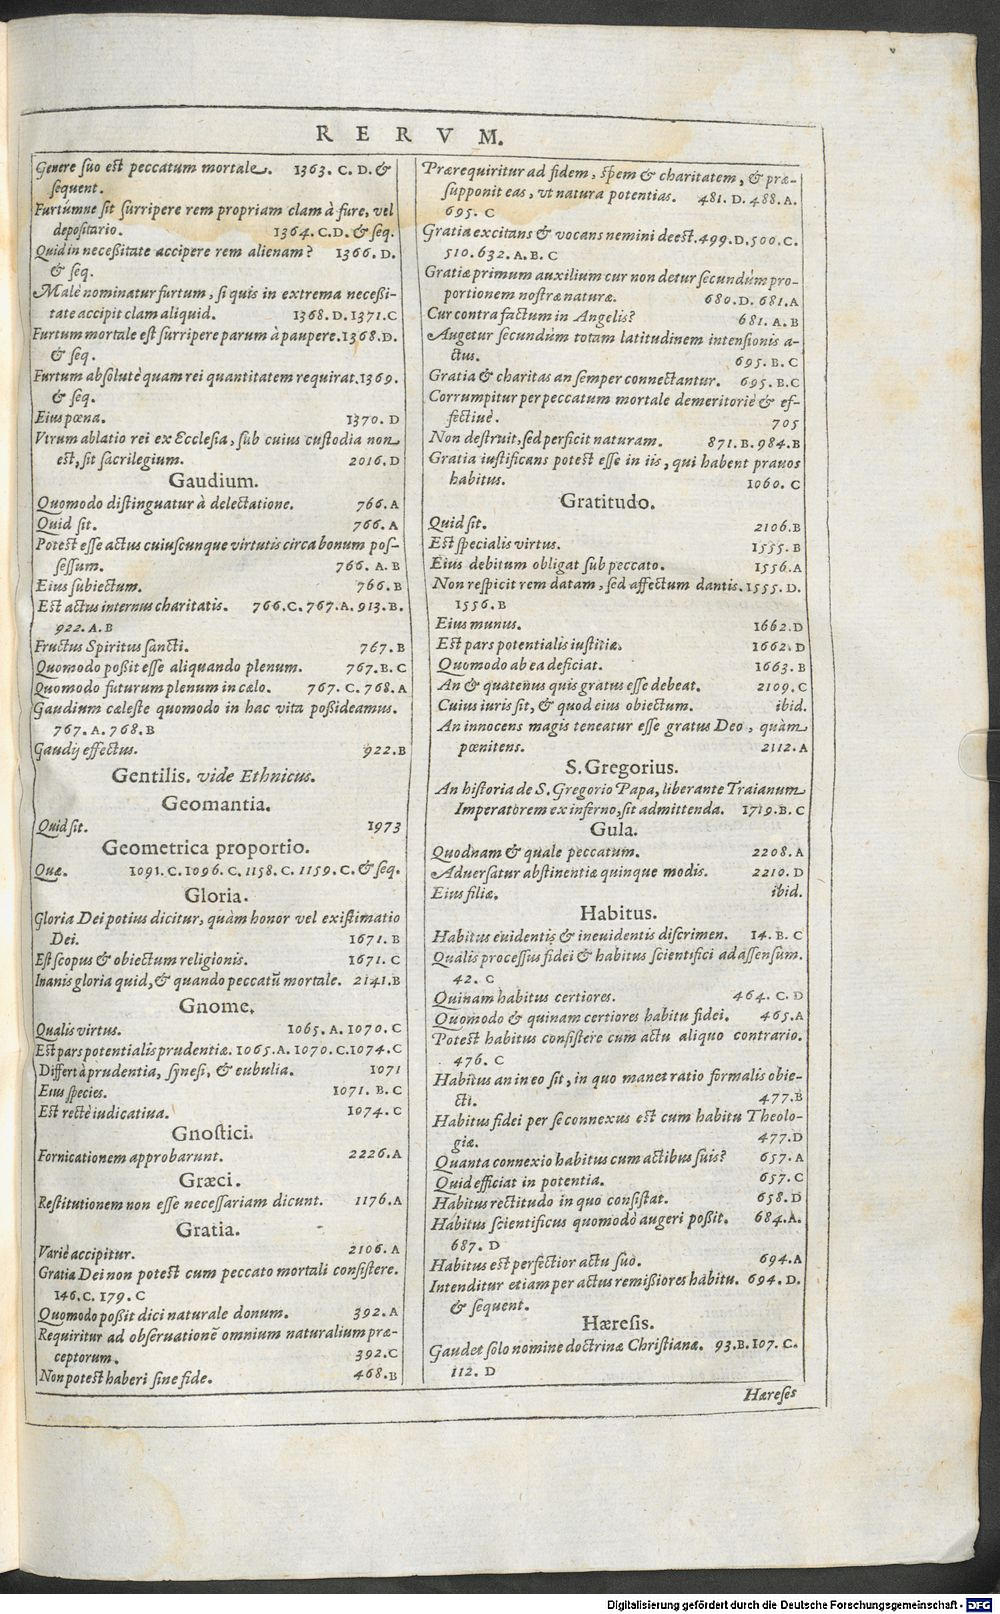 RERVM.
Genere suo est peccatum mortale. 1363. C. D. &
sequent.
Furtúmne sit surripere rem propriam clam à fure, vel
depositario. 1364. C.D. & seq.
Quid in necessitate accipere rem alienam? 1366. D.
& seq.
Malè nominatur furtum, si quis in extrema necessi-
tate accipit clam aliquid. 1368. D. 1371. C
Furtum mortale est surripere parum à paupere. 1368. D.
& seq.
Furtum absolutè quam rei quantitatem requirat. 1369.
& seq.
Eius pœna. 1370. D
Vtrum ablatio rei ex Ecclesia, sub cuius custodia non
est, sit sacrilegium. 2016. D
Gaudium.
Quomodo distinguatur à delectatione. 766. A
Quid sit. 766. A
Potest esse actus cuiuscunque virtutis circa bonum pos-
sessum. 766. A. B
Eius subiectum. 766. B
Est actus internus charitatis. 766. C. 767. A. 913. B.
922. A. B
Fructus Spiritus sancti. 767. B
Quomodo possit esse aliquando plenum. 767. B. C
Quomodo futurum plenum in cælo. 767. C. 768. A
Gaudium cæleste quomodo in hac vita possideamus.
767. A. 768. B
Gaudij effectus. 922. B
Gentilis. vide Ethnicus.
Geomantia.
Quid sit. 1973
Geometrica proportio.
Quæ. 1091. C. 1096. C. 1158. C. 1159. C. & seq.
Gloria.
Gloria Dei potius dicitur, quàm honor vel existimatio
Dei. 1671. B
Est scopus & obiectum religionis. 1671. C
Inanis gloria quid, & quando peccatū mortale. 2141. B
Gnome.
Qualis virtus. 1065. A. 1070. C
Est pars potentialis prudentiæ. 1065. A. 1070. C. 1074. C
Differt à prudentia, synesi, & eubulia. 1071
Eius species. 1071. B. C
Est rectè iudicatiua. 1074. C
Gnostici.
Fornicationem approbarunt. 2226. A
Græci.
Restitutionem non esse necessariam dicunt. 1176. A
Gratia.
Variè accipitur. 2106. A
Gratia Dei non potest cum peccato mortali consistere.
146. C. 179. C
Quomodo possit dici naturale donum. 392. A
Requiritur ad obseruationē omnium naturalium præ-
ceptorum. 392. C
Non potest haberi sine fide. 468. B
Prærequiritur ad fidem, spem & charitatem, & præ-
supponit eas, vt natura potentias. 481. D. 488. A.
695. C
Gratia excitans & vocans nemini deest. 499. D. 500. C.
510. 632. A. B. C
Gratiæ primum auxilium cur non detur secundùm pro-
portionem nostræ naturæ. 680. D. 681. A
Cur contra factum in Angelis? 681. A. B
Augetur secundùm totam latitudinem intensionis a-
ctus. 695. B. C
Gratia & charitas an semper connectantur. 695. B. C
Corrumpitur per peccatum mortale demeritoriè & ef-
fectiuè. 705
Non destruit, sed perficit naturam. 871. B. 984. B
Gratia iustificans potest esse in iis, qui habent prauos
habitus. 1060. C
Gratitudo.
Quid sit. 2106. B
Est specialis virtus. 1555. B
Eius debitum obligat sub peccato. 1556. A
Non respicit rem datam, sed affectum dantis. 1555. D.
1556. B
Eius munus. 1662. D
Est pars potentialis iustitiæ. 1662. D
Quomodo ab ea deficiat. 1663. B
An & quatenus quis gratus esse debeat. 2109. C
Cuius iuris sit, & quod eius obiectum. ibid.
An innocens magis teneatur esse gratus Deo, quàm
pœnitens. 2112. A
S. Gregorius.
An historia de S. Gregorio Papa, liberante Traianum
Imperatorem ex inferno, sit admittenda. 1719. B. C
Gula.
Quodnam & quale peccatum. 2208. A
Aduersatur abstinentiæ quinque modis. 2210. D
Eius filiæ. ibid.
Habitus.
Habitus euidentis & ineuidentis discrimen. 14. B. C
Qualis processus fidei & habitus scientifici ad assensum.
42. C
Quinam habitus certiores. 464. C. D
Quomodo & quinam certiores habitu fidei. 465. A
Potest habitus consistere cum actu aliquo contrario.
476. C
Habitus an in eo sit, in quo manet ratio formalis obie-
cti. 477. B
Habitus fidei per se connexus est cum habitu Theolo-
giæ. 477. D
Quanta connexio habitus cum actibus suis? 657. A
Quid efficiat in potentia. 657. C
Habitus rectitudo in quo consistat. 658. D
Habitus scientificus quomodò augeri possit. 684. A.
687. D
Habitus est perfectior actu suo. 694. A
Intenditur etiam per actus remissiores habitu. 694. D.
& sequent.
Hæresis.
Gaudet solo nomine doctrinæ Christianæ. 93. B. 107. C.
112. D
Hæreses
Digitalisierung gefördert durch die Deutsche Forschungsgemeinschaft - DFG